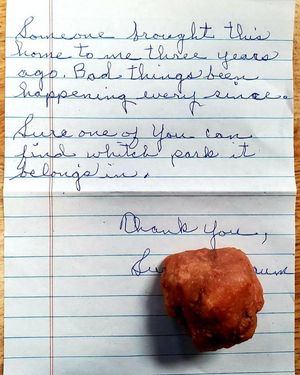 Someone brought this
home to me three years
ago. Bad things been
happening every since.
Sure one of you can
find whitch park it
belongs in.
Thank you,